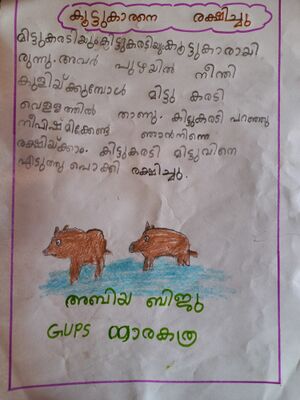 കൂട്ടുകാരനെ രക്ഷിച്ചു
മിട്ടുകരടിയും കിട്ടുകരടിയും കൂട്ടുകാരായി
രുന്നു. അവർ പുഴയിൽ നീന്തി
കുളിയ്ക്കുമ്പോൾ മിട്ടു കരടി
വെള്ളത്തിൽ താണു. കിട്ടുകരടി പറഞ്ഞു
നീ വിഷമിക്കേണ്ട ഞാൻ നിന്നെ
രക്ഷിയ്ക്കാം. കിട്ടുകരടി മിട്ടുവിനെ
എടുത്തു പൊക്കി രക്ഷിച്ചു.
അബിയ ബിജു
GUPS നാരകത്ര